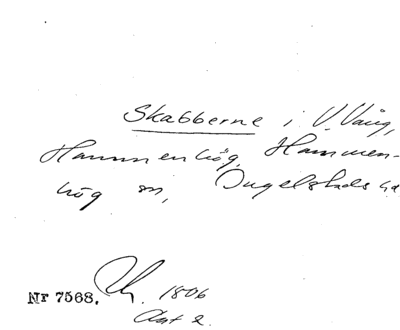 Skabberne i V. Vång,
Hammenhög, Hammen-
hög sn, Ingelstads hd
Nr 7568. 1806
Akt 2.